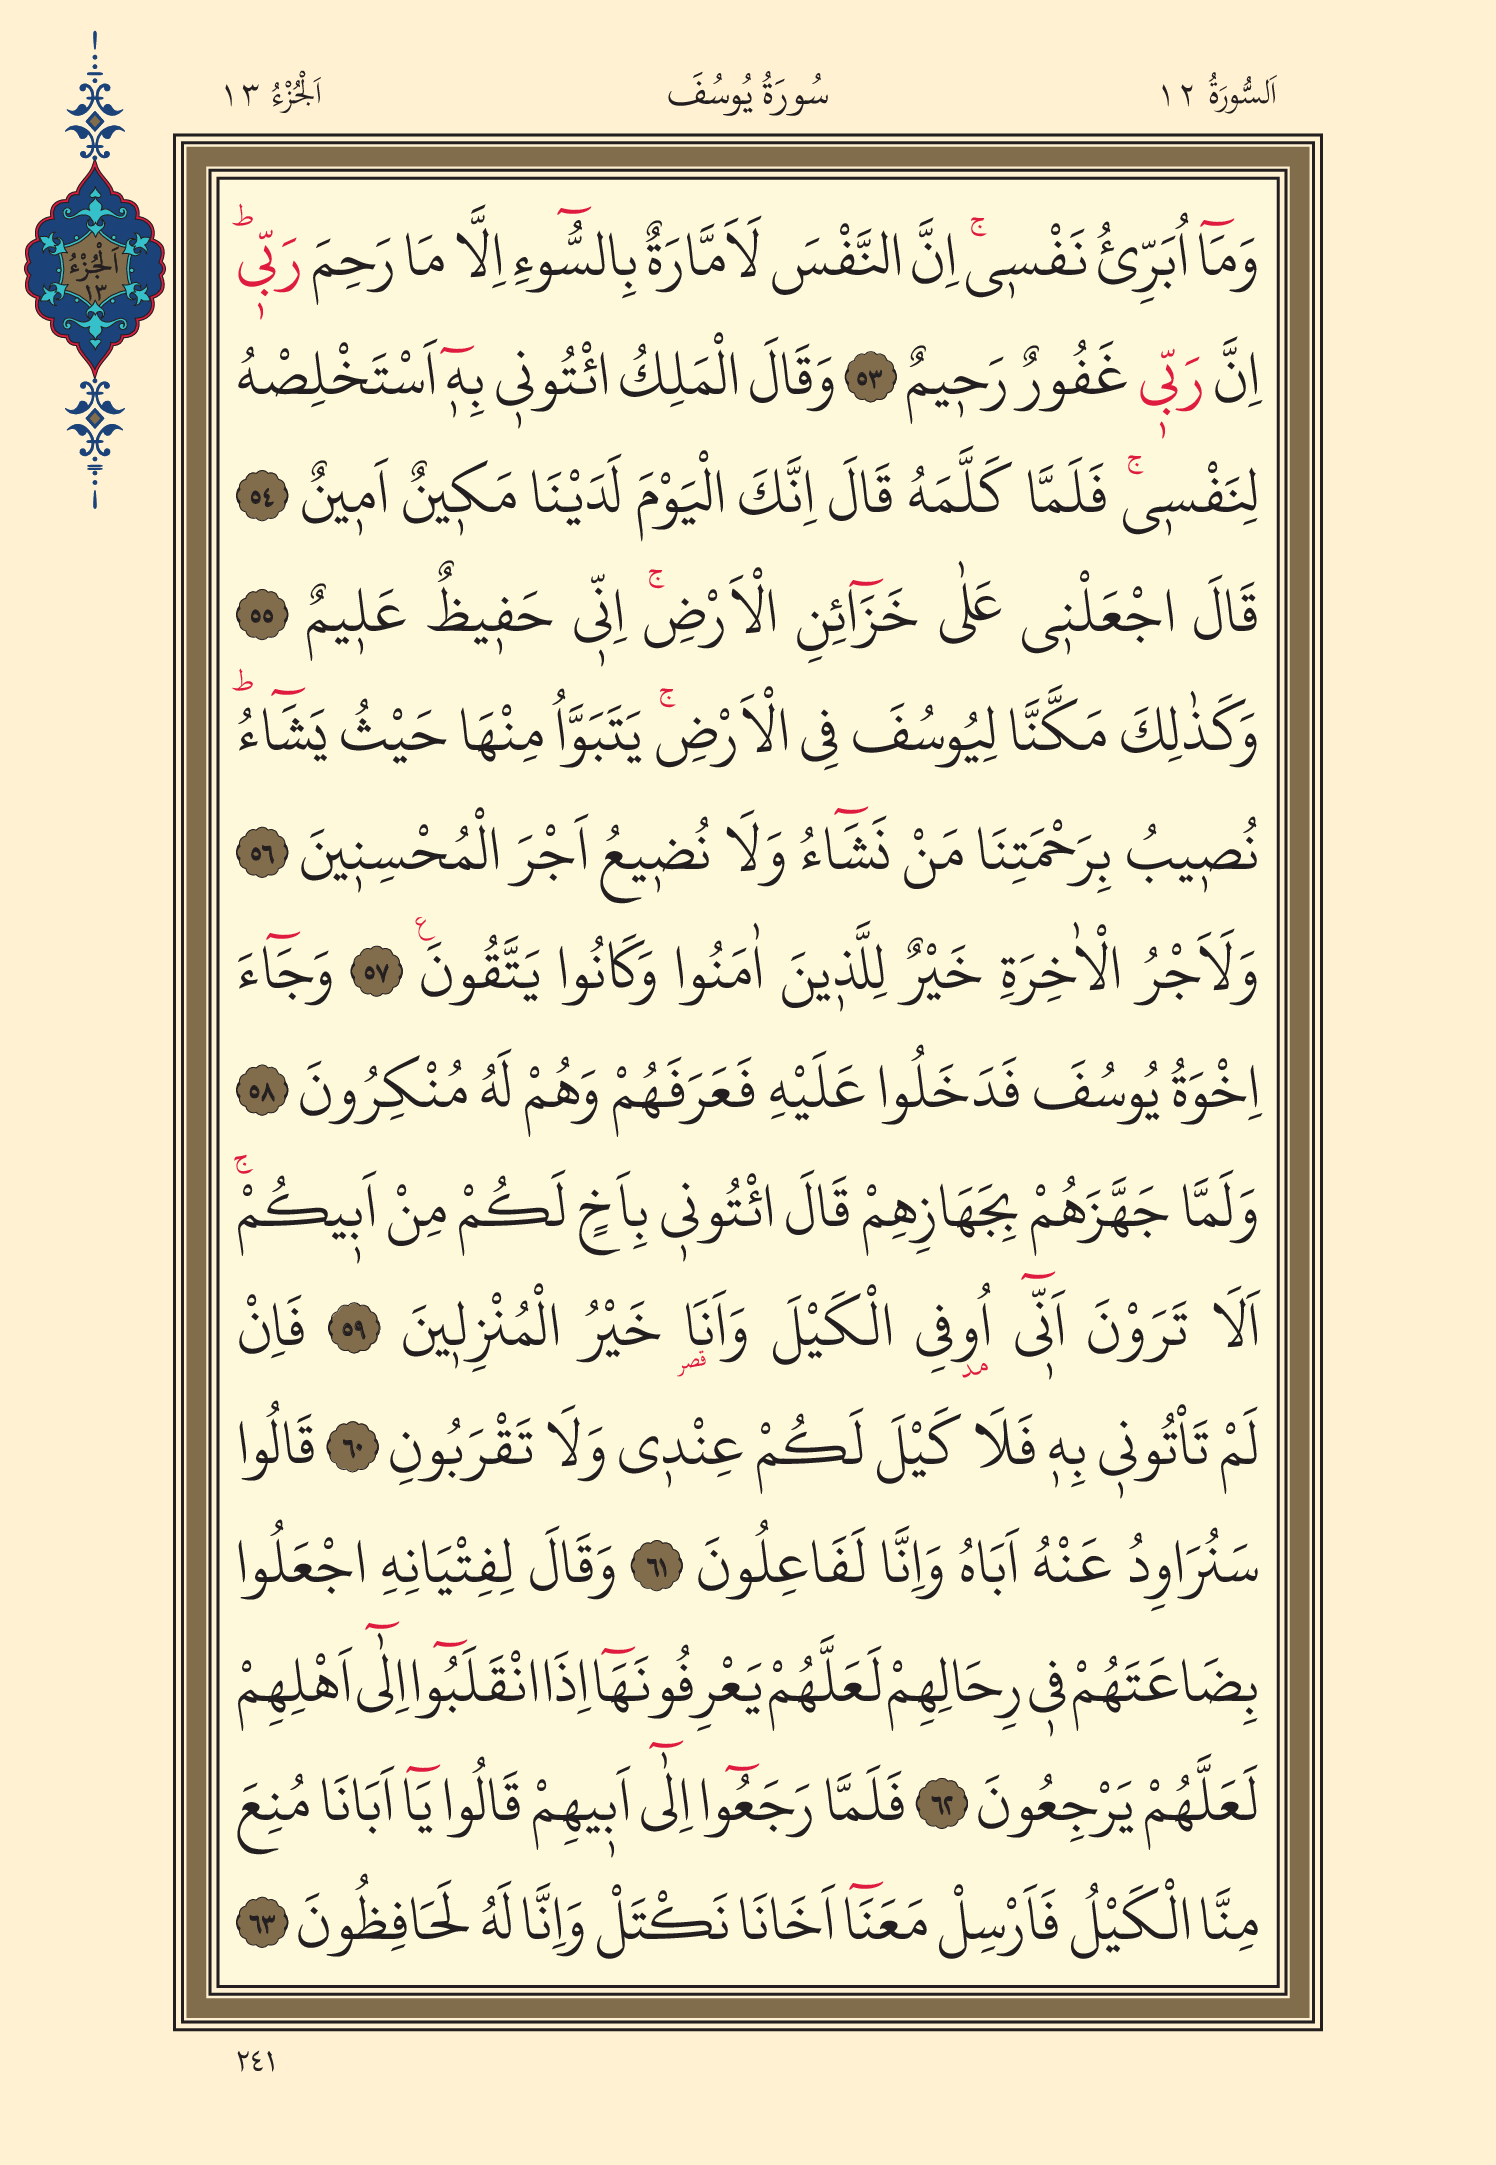 اَلسُّورَةُ ١٢
سُورَةُ يُوسُفَ
اَلْجُزْءُ ١٣
اَلْجُزْءُ
١٣
وَمَٓا اُبَرِّئُ نَفْسٖىۚ اِنَّ النَّفْسَ لَاَمَّارَةٌ بِالسُّٓوءِ اِلَّا مَا رَحِمَ رَبّٖىؕ
اِنَّ رَبّٖى غَفُورٌ رَحٖيمٌ ٥٣ وَقَالَ الْمَلِكُ ائْتُونٖى بِهٖٓ اَسْتَخْلِصْهُ
لِنَفْسٖىۚ فَلَمَّا كَلَّمَهُ قَالَ اِنَّكَ الْيَوْمَ لَدَيْنَا مَكٖينٌ اَمٖينٌ ٥٤
قَالَ اجْعَلْنٖى عَلٰى خَزَٓائِنِ الْاَرْضِۚ اِنّٖى حَفٖيظٌ عَلٖيمٌ ٥٥
وَكَذٰلِكَ مَكَّنَّا لِيُوسُفَ فِى الْاَرْضِۚ يَتَبَوَّاُ مِنْهَا حَيْثُ يَشَٓاءُؕ
نُصٖيبُ بِرَحْمَتِنَا مَنْ نَشَٓاءُ وَلَا نُضٖيعُ اَجْرَ الْمُحْسِنٖينَ ٥٦
وَلَاَجْرُ الْاٰخِرَةِ خَيْرٌ لِلَّذٖينَ اٰمَنُوا وَكَانُوا يَتَّقُونَ ع ٥٧ وَجَٓاءَ
اِخْوَةُ يُوسُفَ فَدَخَلُوا عَلَيْهِ فَعَرَفَهُمْ وَهُمْ لَهُ مُنْكِرُونَ ٥٨
وَلَمَّا جَهَّزَهُمْ بِجَهَازِهِمْ قَالَ ائْتُونٖى بِاَخٍ لَكُمْ مِنْ اَبٖيكُمْۚ
اَلَا تَرَوْنَ اَنّٖٓى اُوفِى الْكَيْلَ وَاَنَا خَيْرُ الْمُنْزِلٖينَ ٥٩ فَاِنْ
مد قصر
لَمْ تَاْتُونٖى بِهٖ فَلَا كَيْلَ لَكُمْ عِنْدٖى وَلَا تَقْرَبُونِ ٦٠ قَالُوا
سَنُرَاوِدُ عَنْهُ اَبَاهُ وَاِنَّا لَفَاعِلُونَ ٦١ وَقَالَ لِفِتْيَانِهِ اجْعَلُوا
بِضَاعَتَهُمْ فٖى رِحَالِهِمْ لَعَلَّهُمْ يَعْرِفُونَهَٓا اِذَا انْقَلَبُٓوا اِلٰٓى اَهْلِهِمْ
لَعَلَّهُمْ يَرْجِعُونَ ٦٢ فَلَمَّا رَجَعُٓوا اِلٰٓى اَبٖيهِمْ قَالُوا يَٓا اَبَانَا مُنِعَ
مِنَّا الْكَيْلُ فَاَرْسِلْ مَعَنَٓا اَخَانَا نَكْتَلْ وَاِنَّا لَهُ لَحَافِظُونَ ٦٣
٢٤١